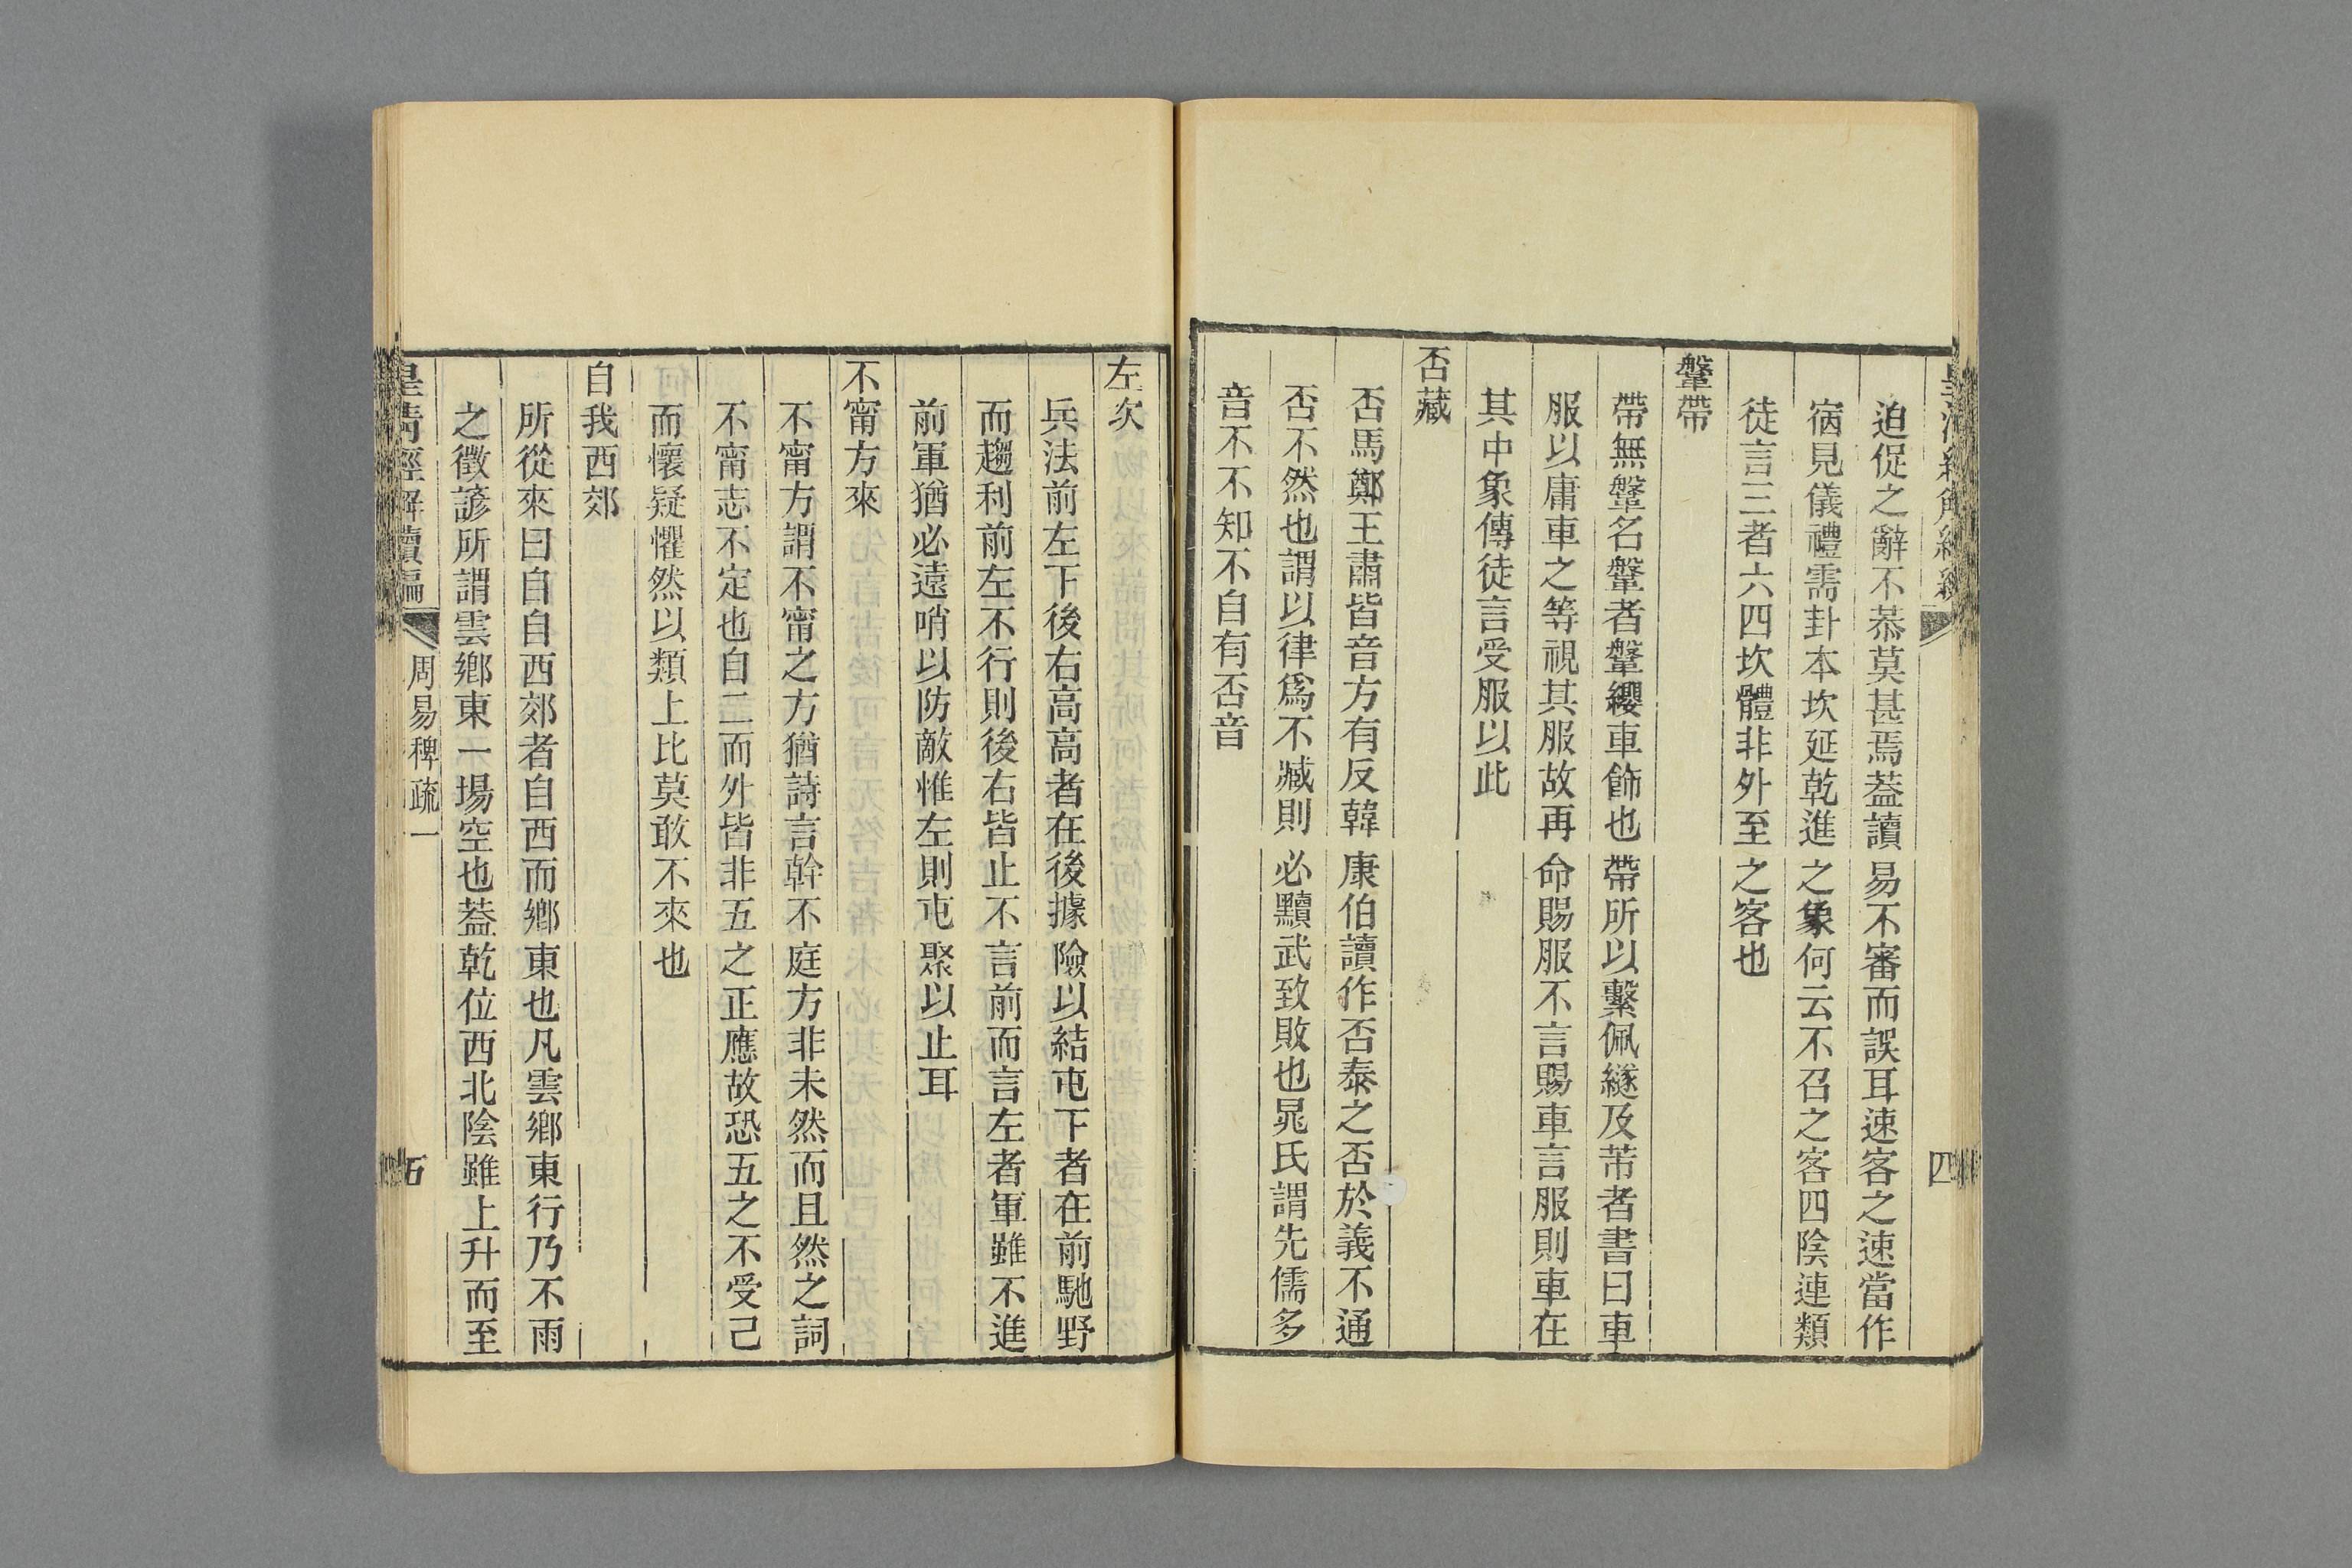 迫促之辭不恭莫甚焉蓋讀易不審而誤耳速客之速當作
宿見儀禮需卦本坎延乾進之象何云不召之客四陰連類
徒言三者六四坎體非外至之客也
鞶帶
帶無鞶名鞶者鞶纓車飾也帶所以繫佩繸及芾者書曰車
服以庸車之等視其服故再命賜服不言賜車言服則車在
其中象傳徒言受服以此
否藏
否馬鄭王肅皆音方有反韓康伯讀作否泰之否於義不通
否不然也謂以律爲不臧則必黷武致敗也晁氏謂先儒多
音不不知不自有否音
四
左次
兵法前左下後右高高者在後據險以結屯下者在前馳野
而趨利前左不行則後右皆止不言前而言左者軍雖不進
前軍猶必遠哨以防敵惟左則屯聚以止耳
不甯方來
不甯方謂不甯之方猶詩言榦不庭方非未然而且然之詞
不甯志不定也自二而外皆非五之正應故恐五之不受己
而懷疑懼然以類上比莫敢不來也
自我西郊
所從來曰自自西郊者自西而鄉東也凡雲鄉東行乃不雨
之徵諺所謂雲鄉東一場空也蓋乾位西北陰雖上升而至
皇清經解續編
周易稗疏一
五